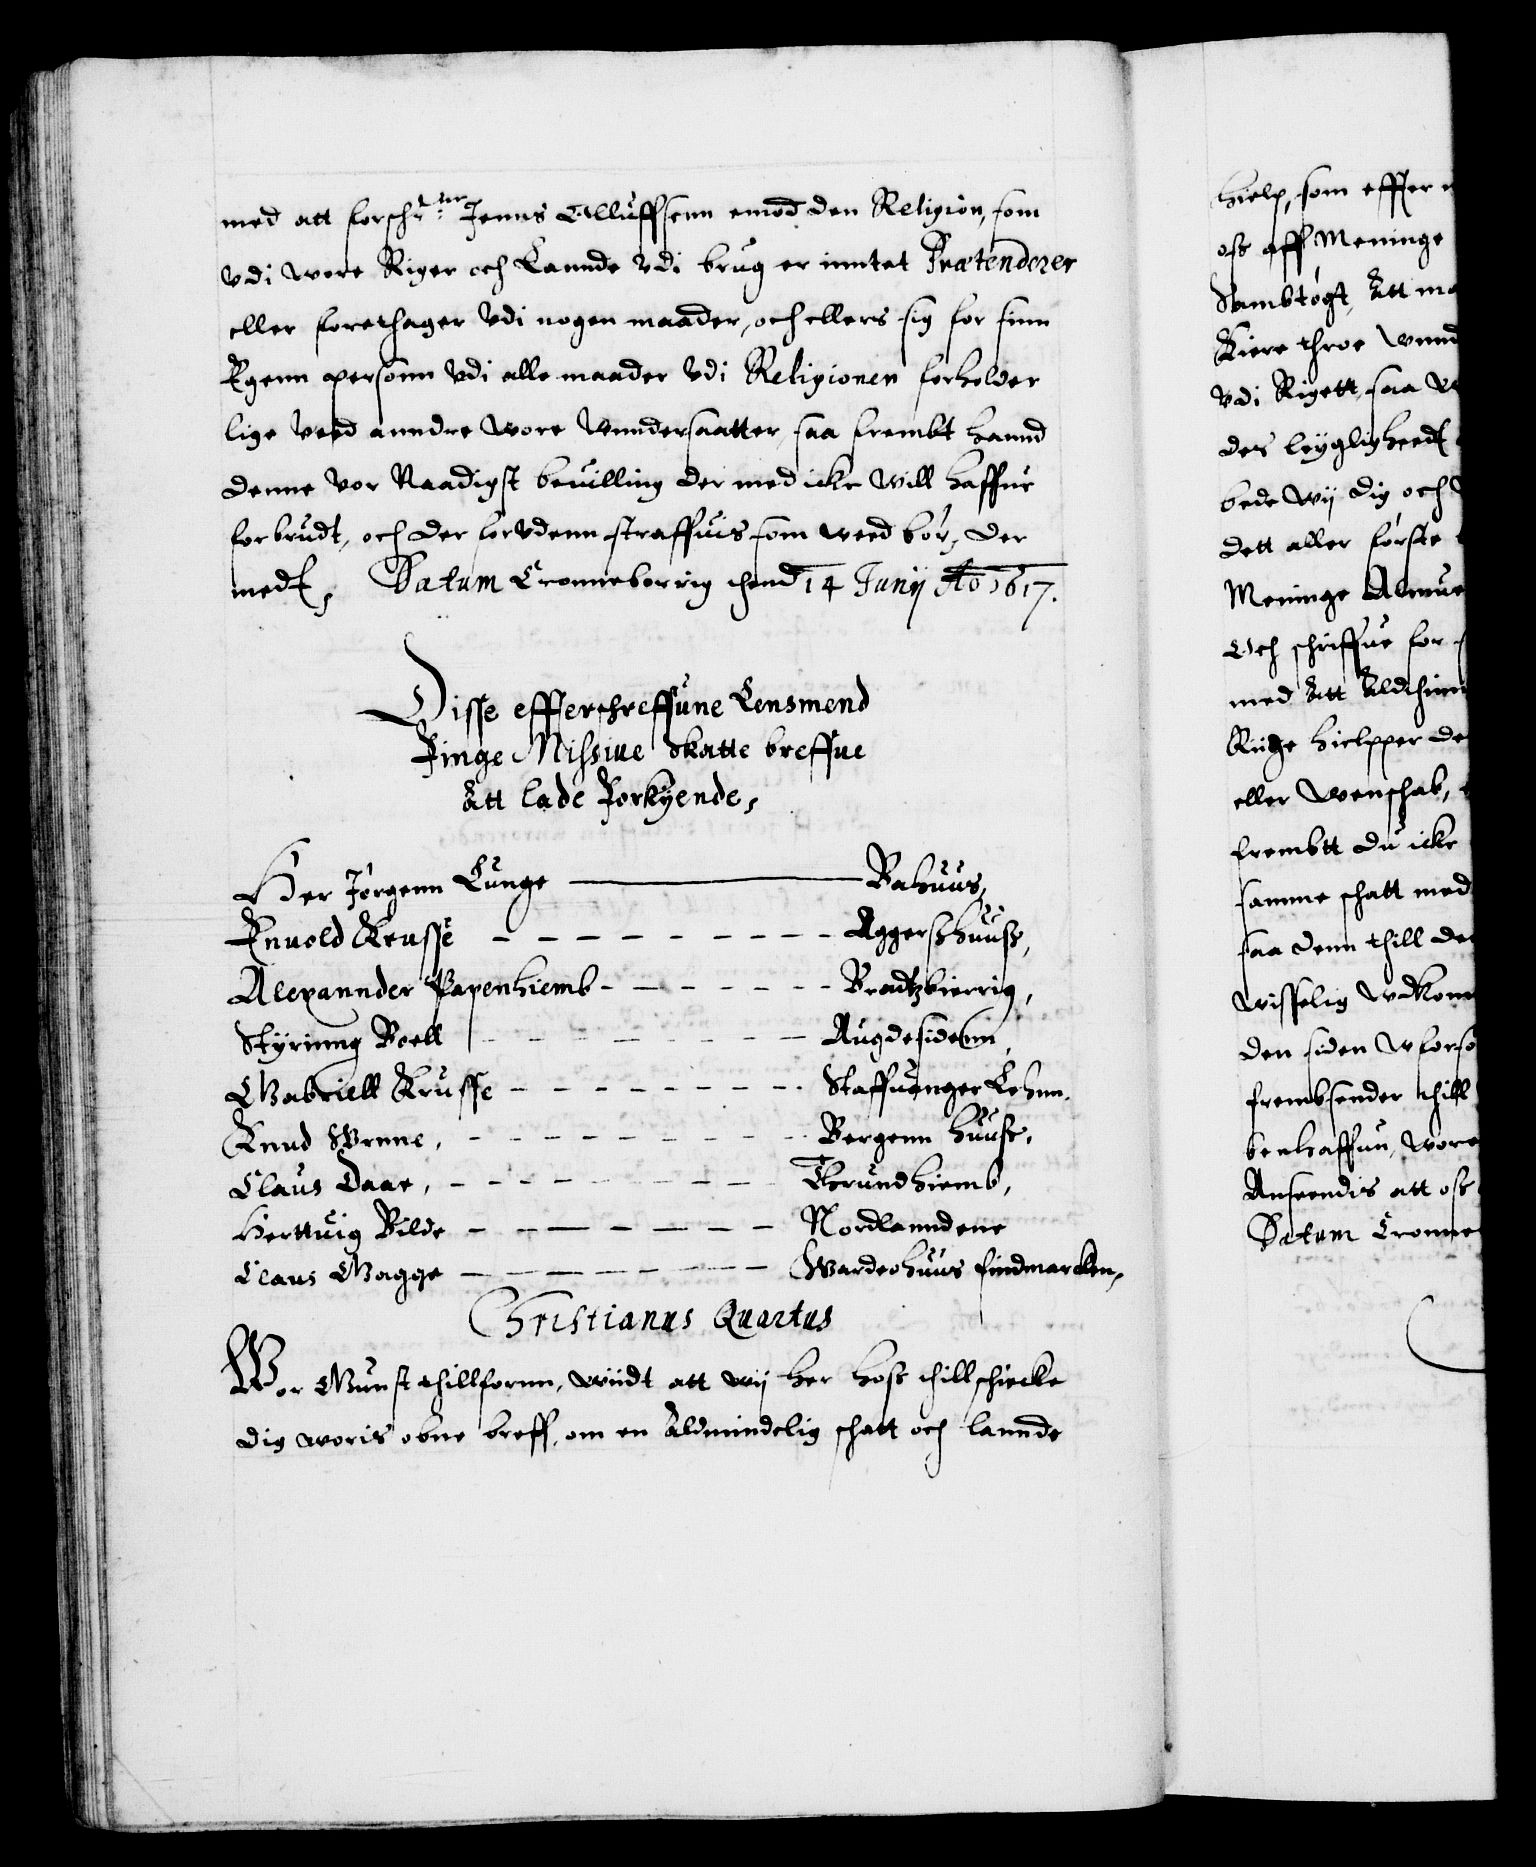 med att forschr:ne Jenns Olluffsenn emod den Religion, som
vdi wore Riger och Lannde vdi brug er inntet Prætenderer
eller forethager vdi nogen maader, och ellers sig for sinn
Egenn personn vdi alle maader vdi Religionen forholder
lige ved anndre wore Wnndersaatter, saa frembt hannd
denne vor Naadigst beuilling der med icke will haffue
forbrudt, och der foruden straffuis som weed bör, Der
medt, Datum Cronneborrig thend 14 Junij Ao 1617.
Disse effterschreffune Lensmend
Finge Missiue Skatte breffue
Att lade Forkyende,
Her Jörgenn Lunge Bahuus,
Enuold Krusse Aggershuuss,
Alexannder Papenhiemb Bradtzbierrig,
Styring Boell Augdesidenn
Gabriell Krusse Staffuanger Lehnn.
Knud Wrnne, Bergenn huuss,
Claus Daae, Thrundhiemb,
Herttuig Bilde Nordlanndene
Claus Gagge Wardeohuus findmarcken,
Christianus Quartus
Wor Gunst thillfornn, wiidt att wij her hoss thillschicke
dig woris obne breff, om en Aldmindelig schatt och lannde
hielp, som effter
oss aff Meninge
Sambtögt, Att
Kiere throe
vdi Rigett, saa
des leygligheedt
bede wij dig och
dett aller förste
Meninge Almue
Och schriffue for
med Att
Riige hielpper
eller wenschab,
frembtt du icke
samme schatt med
saa denn thill
wisselig
den siden
frembsender thill
benhaffnn, wore
Anseendis att oss
Datum Cronne